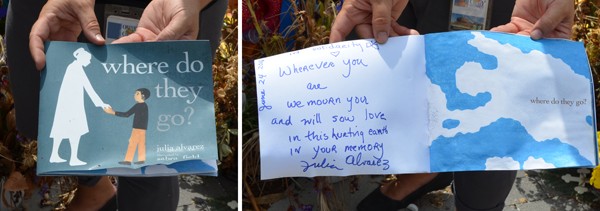 where do
they
go?
julia alvarez
June 24
solidarity
Wherever you
are
we mourn you
and will sow love
in this hurting earth
in your memory
Julia Alvarez
where do they go?